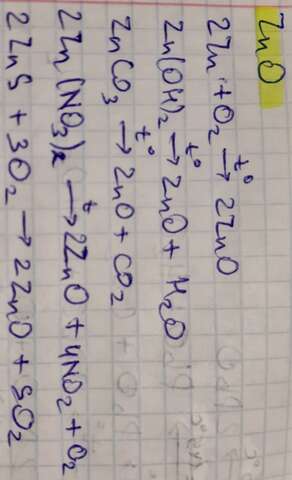 ZnO
2Zn + O₂ →t° 2ZnO
Zn(OH)₂ →t° ZnO + H₂O
ZnCO₃ →t° ZnO + CO₂
2Zn(NO₃)₂ →t 2ZnO + 4NO₂ + O₂
2ZnS + 3O₂ → 2ZnO + SO₂